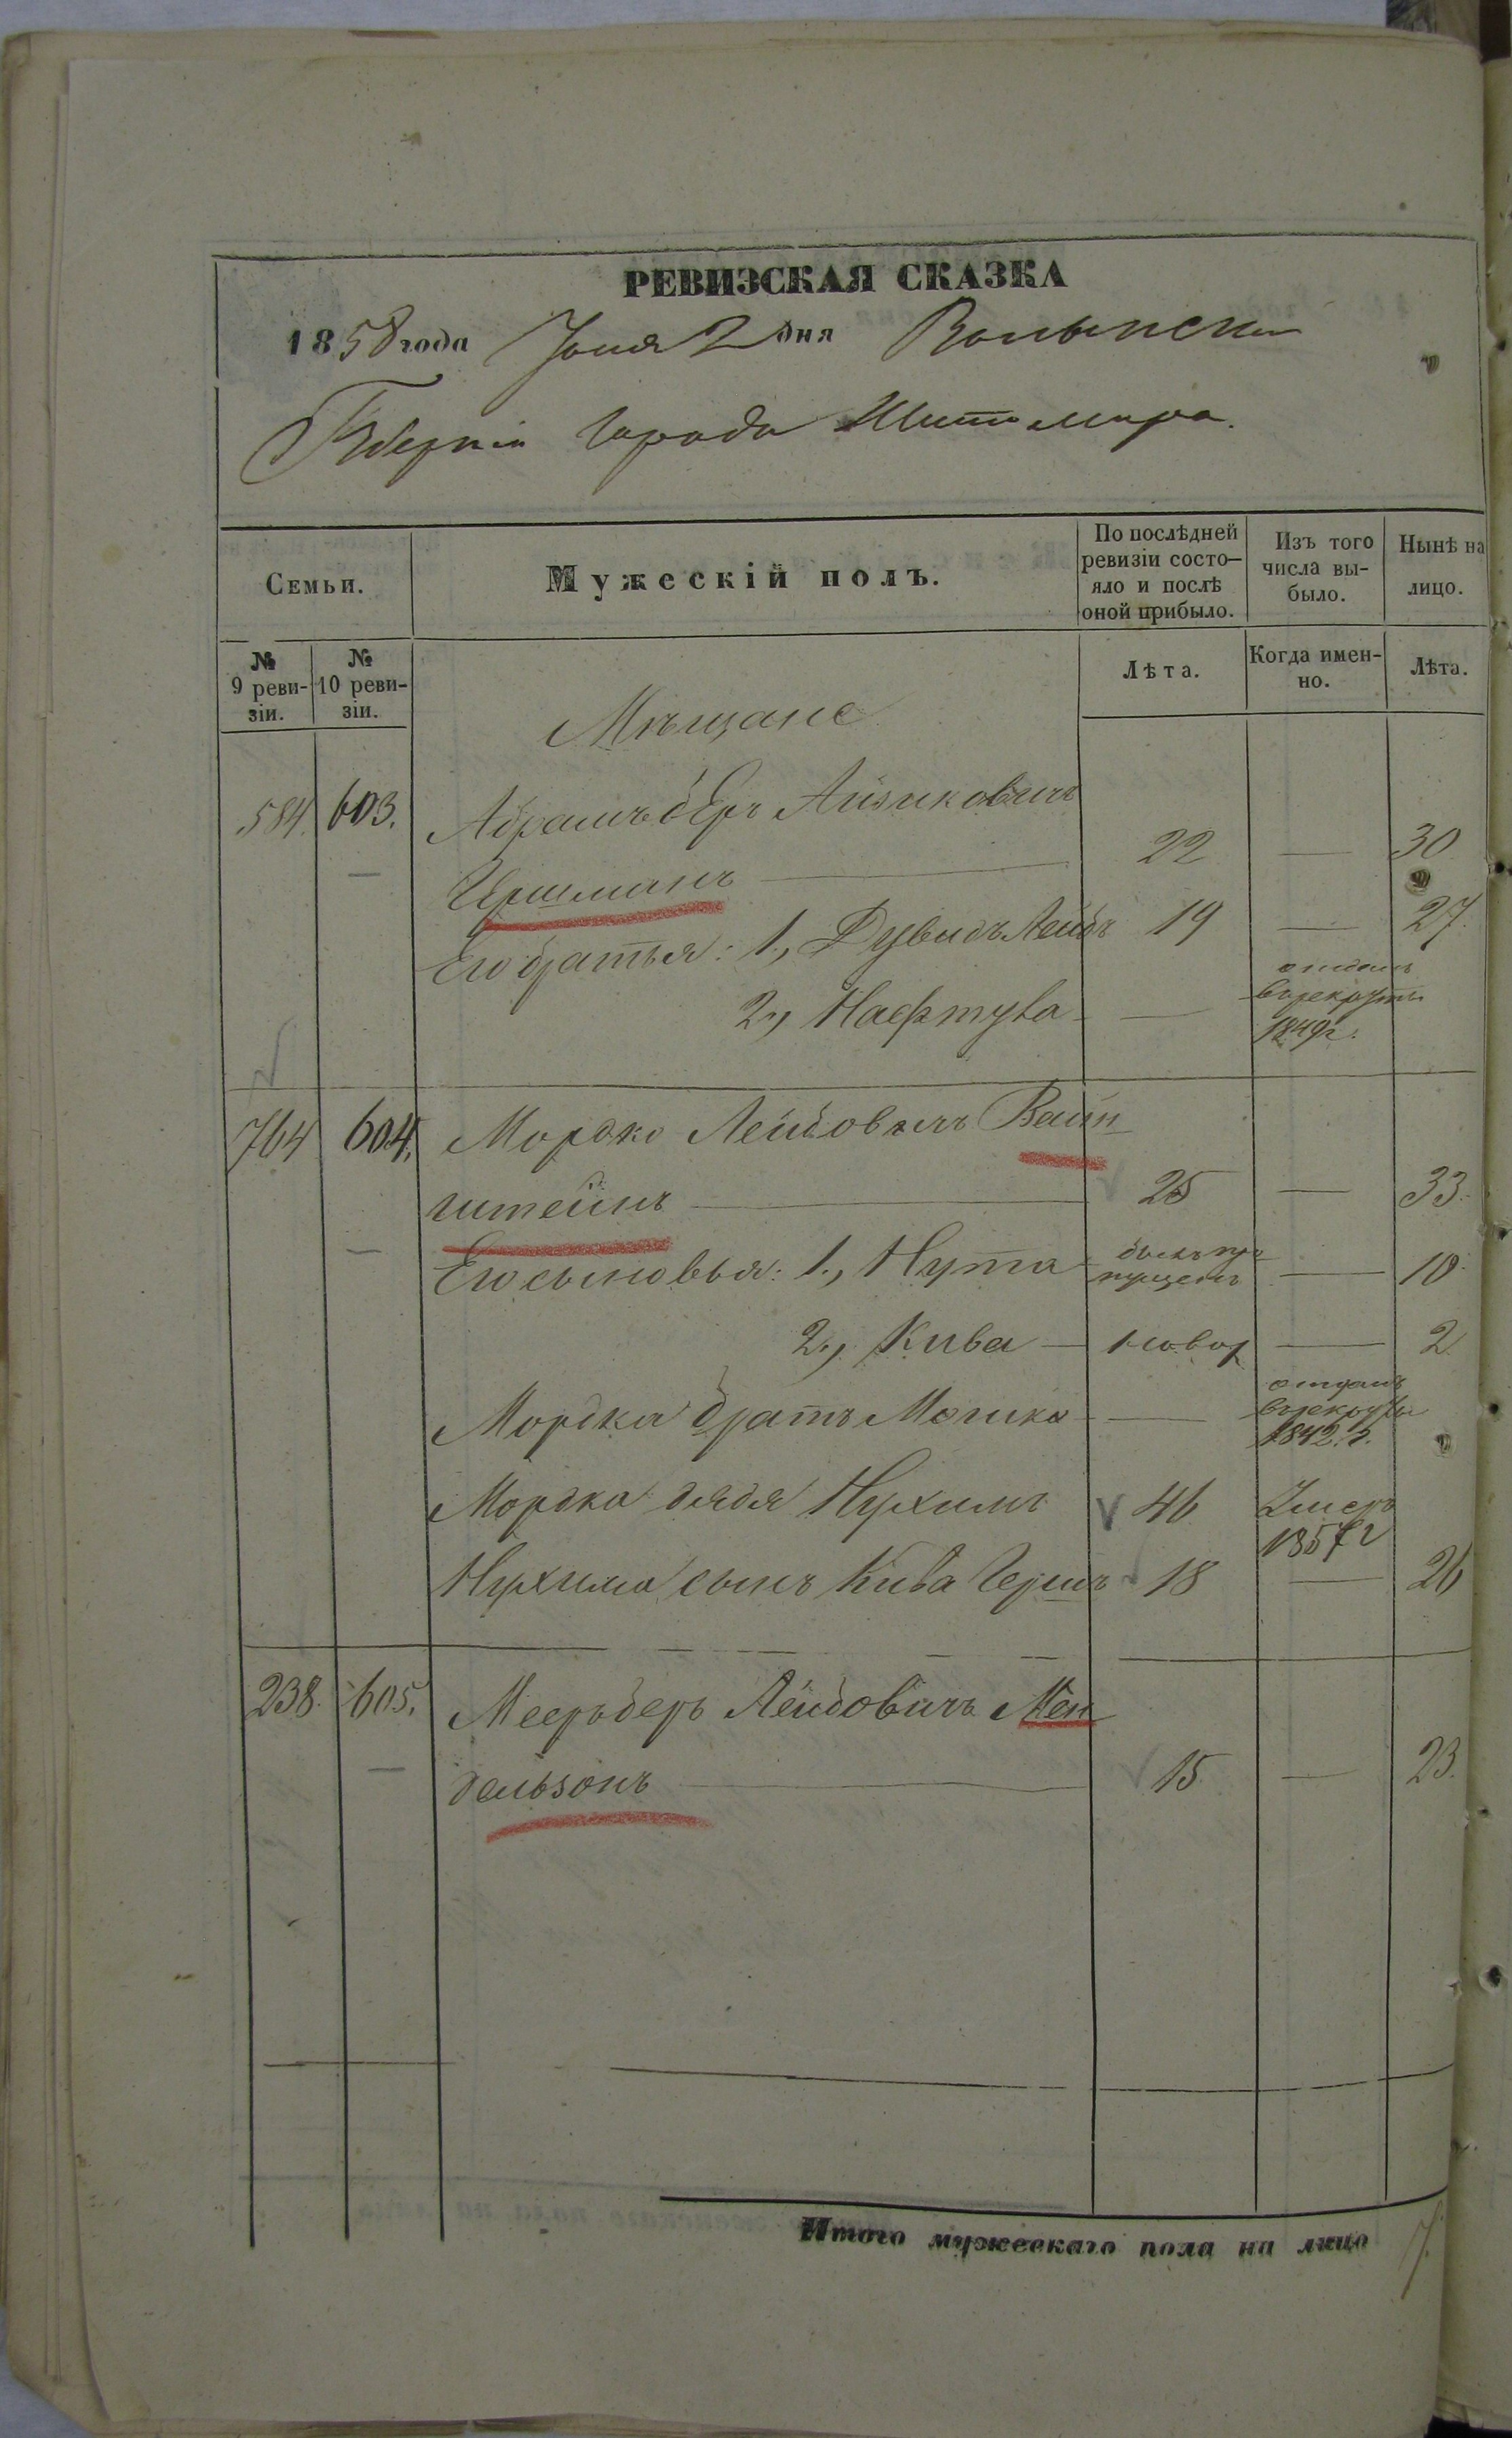 РЕВИЗСКАЯ СКАЗКА
1858 года Іюня 2 дня Волынской
Губерніи Города Житомира.
Семьи.
Мужескій полъ.
По послѣдней ревизіи состо-яло и послѣ оной прибыло.
Изъ того числа вы-было.
Нынѣ на лицо.
№ 9 реви-зіи.
№ 10 реви-зіи.
Лѣта.
Когда имен-но.
Лѣта.
Мѣщане
584. 603. Абрамъ беръ Айзиковичъ
Гершманъ — 22 — 30
Его братья: 1., Дувидъ Лейбъ 19 — 27.
2., Нафтула — — отданъ въ рекруты 1849 г.
764 604. Мордко Лейбовичъ Вайн
штейнъ — 25 — 33.
Его сыновья: 1., Нута былъ пропущенъ — 10.
2., Кива — новор — 2
Мордка братъ Мошко — — отданъ въ рекруты 1842. г.
Мордка дядя Нухимъ 46 Умеръ 1857 г
Нухима сынъ Кива Гершъ 18 — 26
238. 605. Меерберъ Лейбовичъ Мен
дельзонъ — 15 — 23.
Итого мужескаго пола на лицо 7.